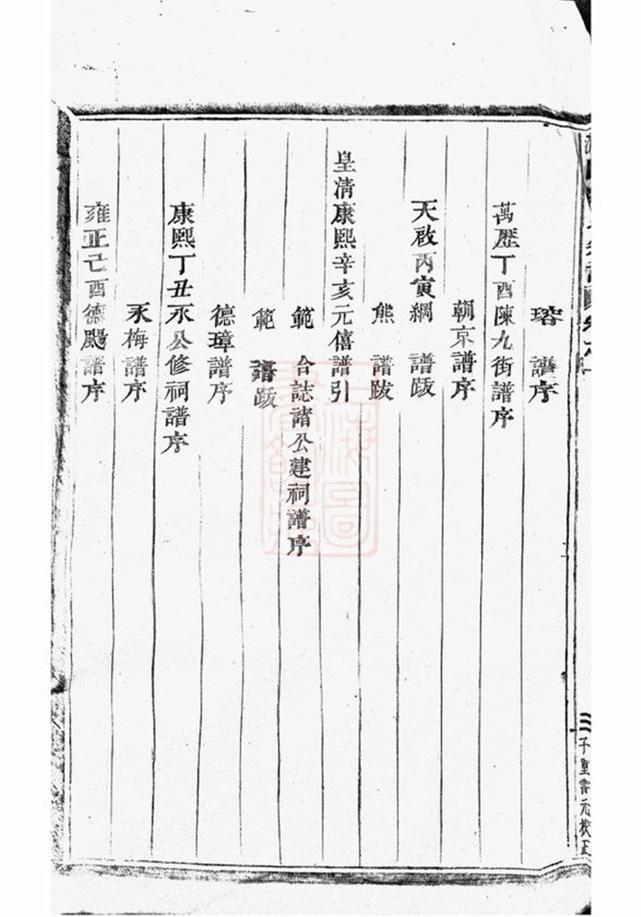 瑃 譜序
萬歷丁酉陳九街譜序
朝京譜序
天啟丙寅綱 譜跋
熊 譜跋
皇清康熙辛亥元僖譜引
範 合誌諸公建祠譜序
範 譜跋
德璋譜序
康熙丁丑永公修祠譜序
永梅譜序
雍正己酉德颺譜序
子重書元校正